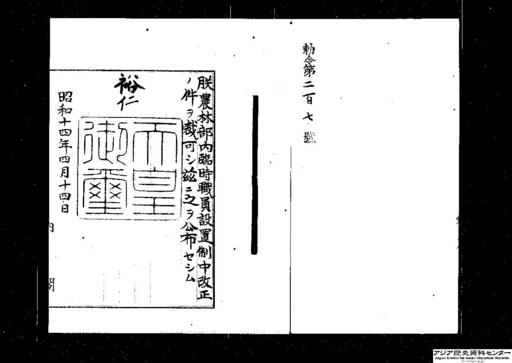 勅令第二百七號
朕農林部内臨時職員設置制中改正
ノ件ヲ裁可シ茲ニ之ヲ公布セシム
裕仁
天皇御璽
昭和十四年四月十四日
内閣
アジア歴史資料センター
Japan Center for Asian Historical Records